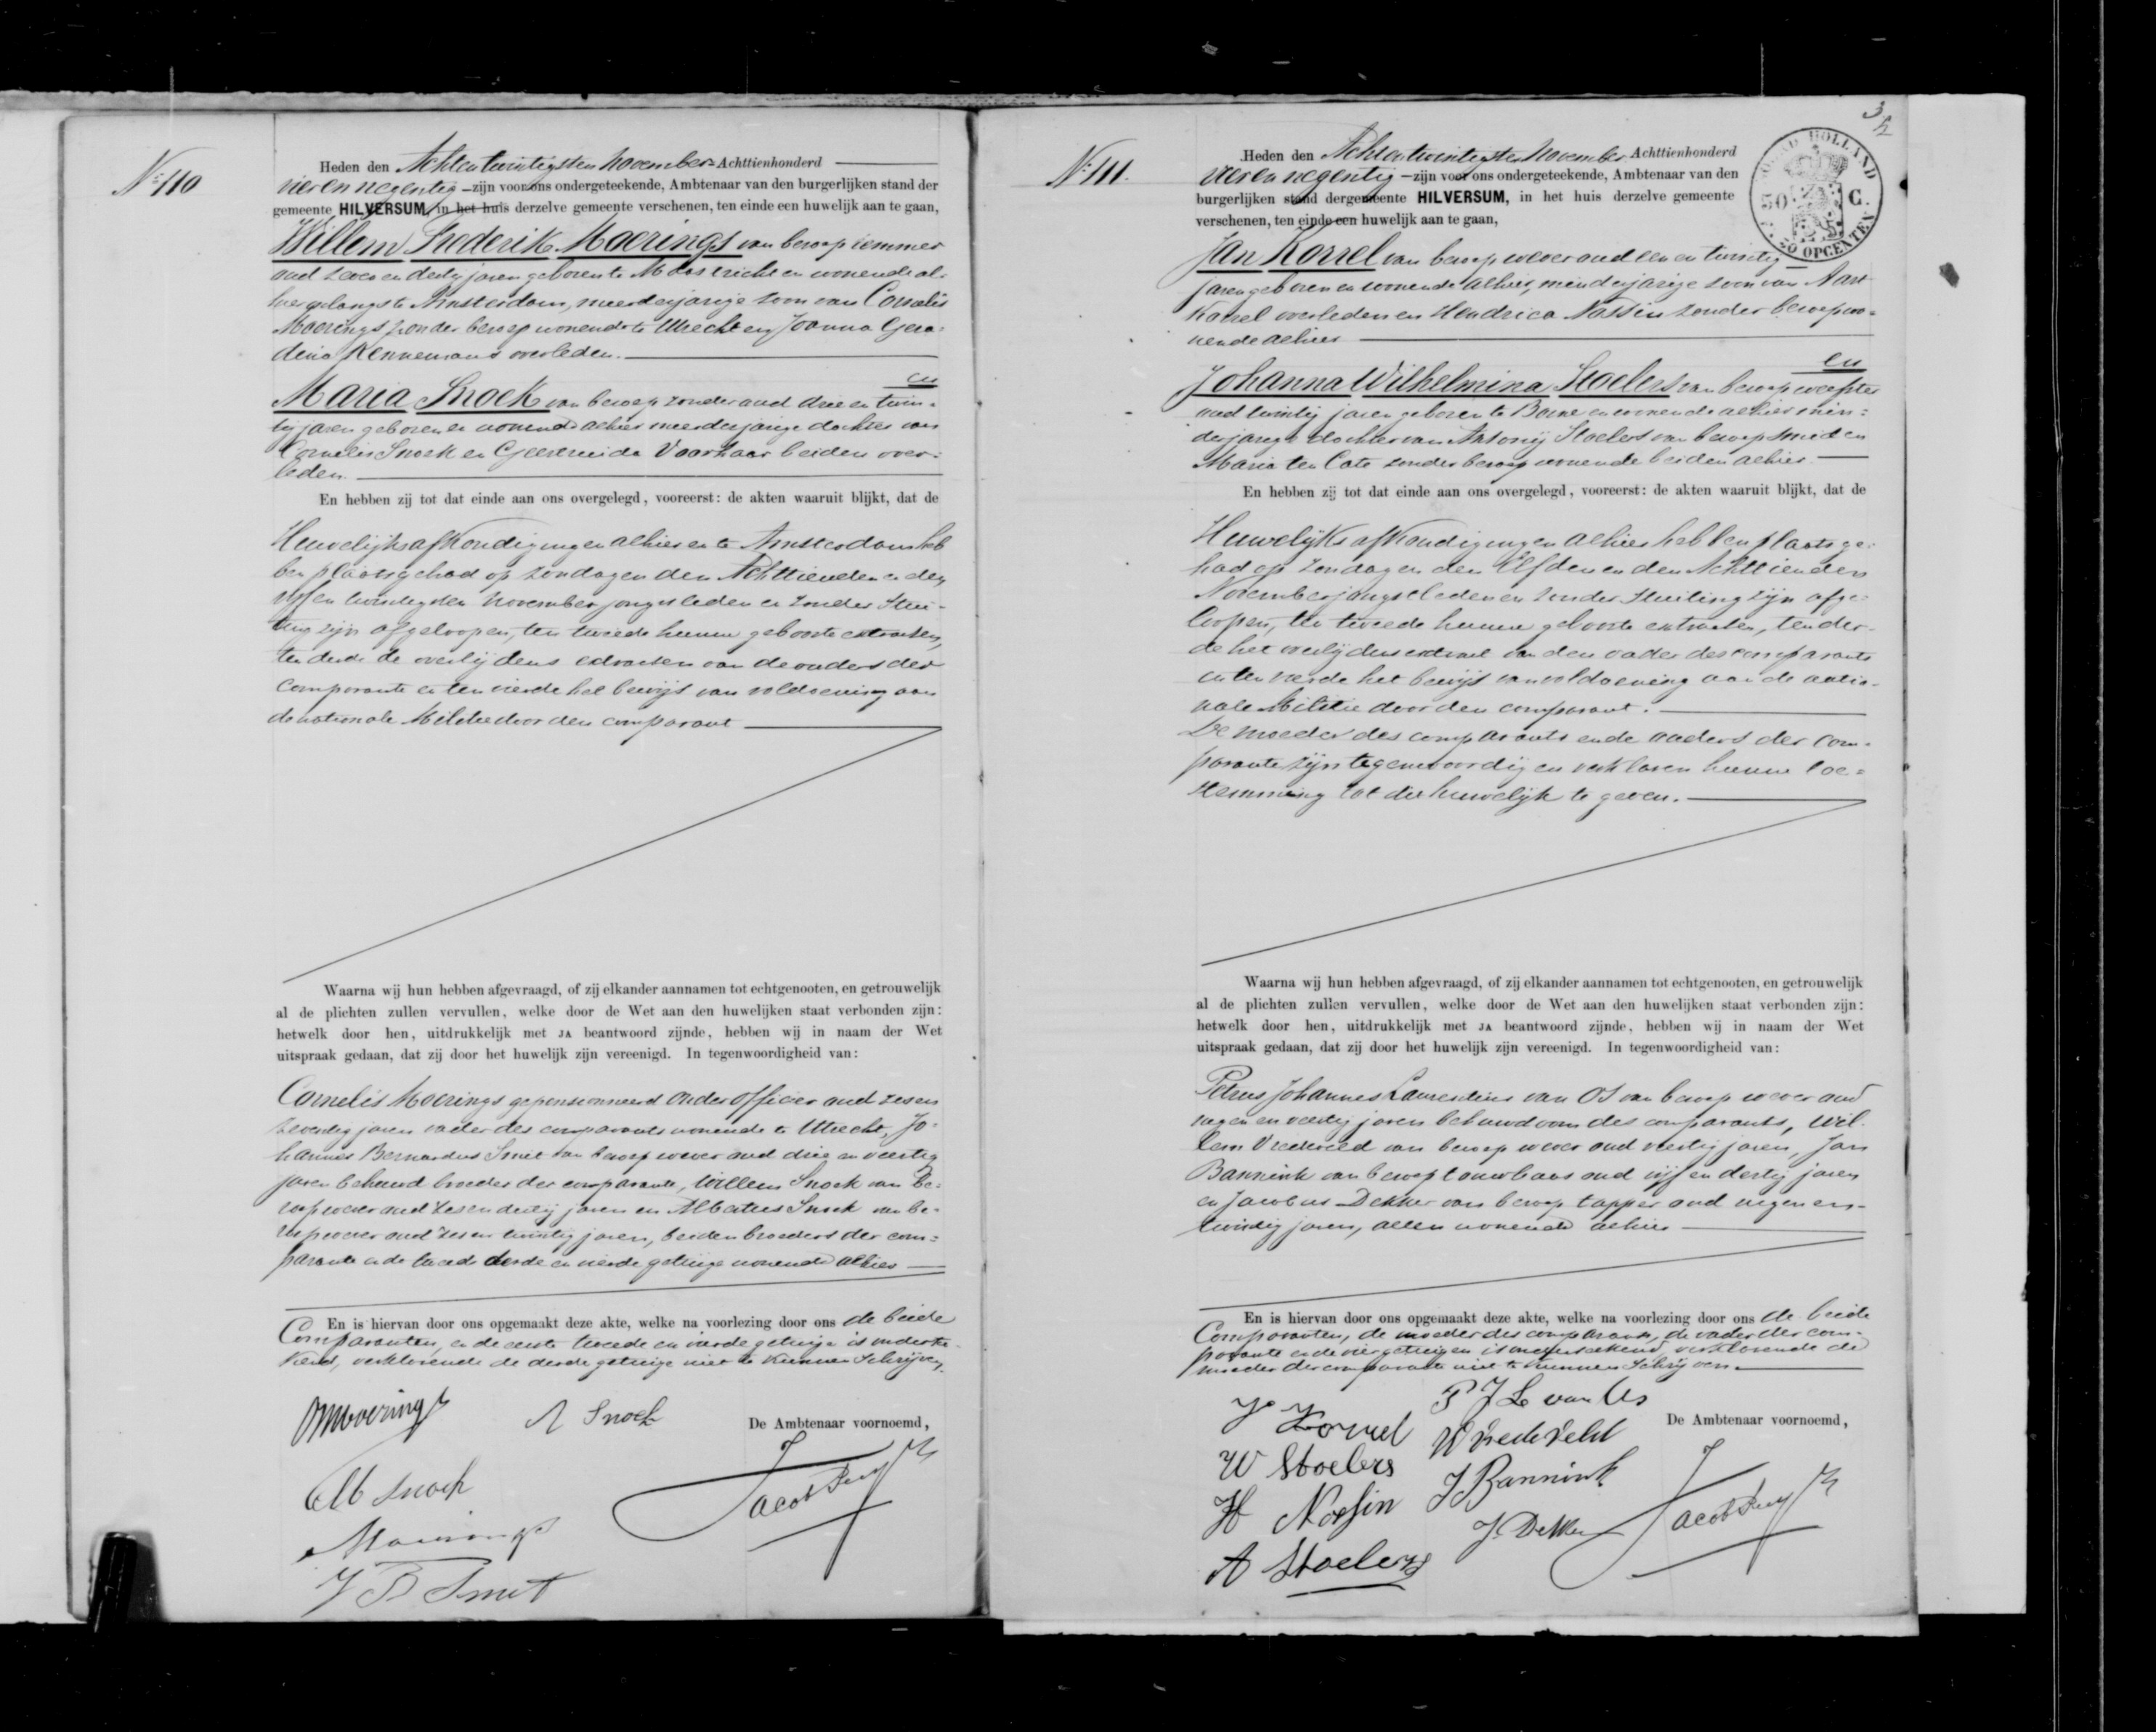 N:110
Heden den Achtentwintigsten November Achttienhonderd
vieren negentig – zijn voor ons ondergeteekende, Ambtenaar van den burgerlijken stand der
gemeente HILVERSUM, in het huis derzelve gemeente verschenen, ten einde een huwelijk aan te gaan,
Willem Frederik Moerings van beroep
oud en dertig jaren geboren te Maastricht en wonende al-
hier onlangs te Amsterdam, meerderjarige zoon van Cornelis
Moerings zonder beroep wonende te Utrecht en Joanna Gera-
dina Kennemans overleden.
en
Maria Snoek van beroep zonder oud drie en twin-
tig jaren geboren en wonende alhier meerderjarige dochter van
Cornelis Snoek en Geertruida Voorhaar beiden over-
leden.
En hebben zij tot dat einde aan ons overgelegd, vooreerst: de akten waaruit blijkt, dat de
Huwelijksafkondigingen alhier en te Amsterdam heb
ben plaats gehad op zondagen den Achttienden en den
vijfen twintigsten November jongstleden en zonder Stui-
ting zijn afgeloopen, ten tweede hunne geboorte extracten,
ten derde de overlijdens extracten van de ouders der
comparante en ten vierde het bewijs van voldoening aan
de nationale Militie door den comparant
Waarna wij hun hebben afgevraagd, of zij elkander aannamen tot echtgenooten, en getrouwelijk
al de plichten zullen vervullen, welke door de Wet aan den huwelijken staat verbonden zijn:
hetwelk door hen, uitdrukkelijk met JA beantwoord zijnde, hebben wij in naam der Wet
uitspraak gedaan, dat zij door het huwelijk zijn vereenigd. In tegenwoordigheid van:
Cornelis Moerings gepensionneerd onder officier oud zesen
zeventig jaren vader des comparants wonende te Utrecht, Jo-
hannes Bernardus Smit van beroep wever oud drie en veertig
jaren behuwd broeder der comparante, Willem Snoek van be-
roep wever oud zesendertig jaren en Albertus Snoek van be-
roep wever oud zesen twintig jaren, beiden broeders der com-
parante en de tweede derde en vierde getuige wonende alhier
En is hiervan door ons opgemaakt deze akte, welke na voorlezing door ons de beide
Comparanten, en de eerste tweede en vierde getuige is onderte-
kend, verklarende de derde getuige niet te kunnen Schrijven.
A Snoek
De Ambtenaar voornoemd,
M Snoek
Jacob
Moerings
J B Smit
N:111.
Heden den Achtentwintigsten November Achttienhonderd
vieren negentig – zijn voor ons ondergeteekende, Ambtenaar van den
burgerlijken stand dergemeente HILVERSUM, in het huis derzelve gemeente
verschenen, ten einde een huwelijk aan te gaan,
HOLLAND
50 C.
OPCENTEN
Jan Korrel van beroep wever oud een en twintig
jaren geboren en wonende alhier, minderjarige zoon van Aart
Korrel overleden en Hendrica Nossin zonder beroep wo-
nende alhier
en
Johanna Wilhelmina Stoelers van beroep weefster
oud twintig jaren geboren te Borne en wonende alhier min-
derjarige dochter van Antonij Stoelers van beroep smid en
Maria ten Cate zonder beroep wonende beiden alhier
En hebben zij tot dat einde aan ons overgelegd, vooreerst: de akten waaruit blijkt, dat de
Huwelijks afkondigingen alhier hebben plaats ge-
had op zondagen den Elfden en den Achttienden
November jongstleden en zonder stuiting zijn afge-
loopen, ten tweede hunne geboorte extracten, ten der-
de het overlijdens extract van den vader des comparants
en ten vierde het bewijs van voldoening aan de natio-
nale Militie door den comparant.
De moeder des comparants en de ouders der com-
parante zijn tegenwoordig en verklaren hunne toe-
stemming tot dit huwelijk te geven.
Waarna wij hun hebben afgevraagd, of zij elkander aannamen tot echtgenooten, en getrouwelijk
al de plichten zullen vervullen, welke door de Wet aan den huwelijken staat verbonden zijn:
hetwelk door hen, uitdrukkelijk met JA beantwoord zijnde, hebben wij in naam der Wet
uitspraak gedaan, dat zij door het huwelijk zijn vereenigd. In tegenwoordigheid van:
Petrus Johannes Laurentius van Os van beroep wever oud
negen en veertig jaren behuwdoom des comparants, Wil-
lem Vredeveld van beroep wever oud veertig jaren, Jan
Bannink van beroep touwbaas oud vijf en dertig jaren
en Jacobus Dekker van beroep tapper oud negen en-
twintig jaren, allen wonende alhier
En is hiervan door ons opgemaakt deze akte, welke na voorlezing door ons de beide
Comparanten, de moeder des comparants, de vader der com-
parante en de vier getuigen is onderteekend, verklarende de
moeder der comparante niet te kunnen Schrijven.
J Korrel
P J L van Os
De Ambtenaar voornoemd,
W Stoelers
W Vredeveld
H Nossin
J Bannink
A Stoelers
J. Dekker
Jacob